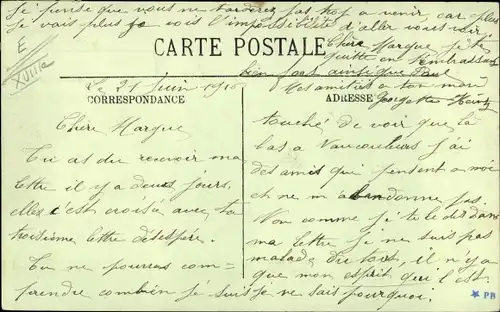 Je pense que vous ne tarderez pas trop a venir, car plus
je vais plus je vois l'impossibilité d'aller vous voir
Chère Marque je te
quitte en t'embrassant
bien fort ainsi que Paul
Mes amitiés a ton mari
Georgette
CARTE POSTALE
CORRESPONDANCE
ADRESSE
Le 21 Juin 1916
Chère Marque
Tu as du recevoir ma
lettre il y a deux jours,
elle s'est croisée avec ta
troisième lettre désespérée.
Tu ne pourras com-
prendre combien je suis
touché de voir que là
bas a Vaucouleurs j'ai
des amis qui pensent a moi
et ne m'abandonne pas.
Non comme je te le dis dans
ma lettre je ne suis pas
malade du tout, il n'y a
que mon esprit qui l'est
je ne sais pourquoi.
E
XVIIIa
★ PB